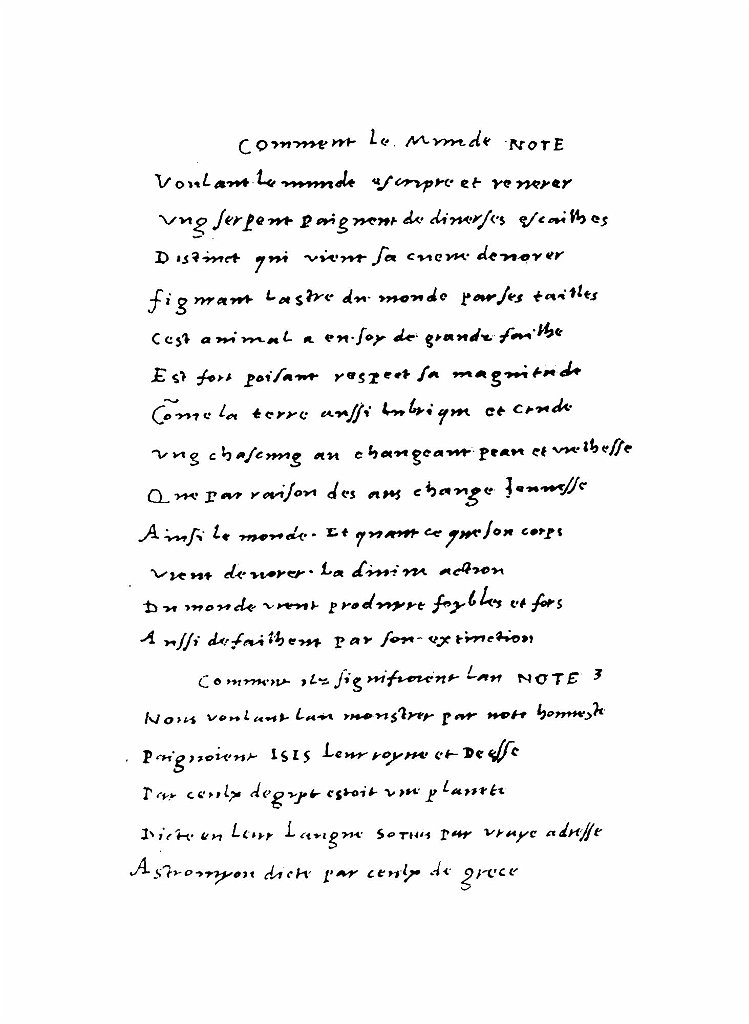 Comment le Munde NOTE
Voulant le munde escripre et renerer
vng serpent paignent de diuerses escailhes
Distinct qui vient sa cueue deuorer
figurant lastre du monde par ses tailles
Cest animal a en soy de grande failhe
Est fort poisant respect sa magnitude
Cõme la terre aussi lubrique et crude
vng chascung an changeant peau et vielhesse
Que par raison des ans change Jeunesse
Ainsi le monde. Et quant ce que son corps
vient deuorer. La diuine action
Du monde vient produyre foybles et fors
Aussi defailhent par son extinction
Comment ilz signifioient lan NOTE 3
Nous voulant lan monstrer par note honneste
Paignoient ISIS leur royne et Deesse
Par ceulx degypt estoit vne planete
Dicte en leur langue SOTHIS par vraye adresse
Astromyon dicte par ceulx de grece